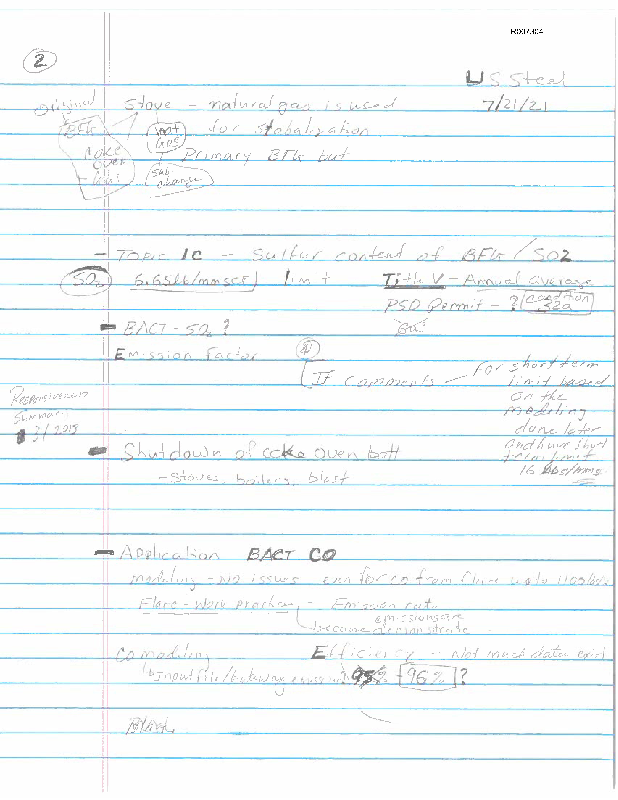 R007304
2
US Steal
7/21/21
Original
Stove - natural gas is used
BFG
not gas
for stabalization
Coke
Oven
Primary BFG but
Sub
change
- Topic 1C - Sulfur content of BFG / SO2
SO2 6.65lb/mmscf limit Title V - Annual average
PSD Permit - ? Condition
32a
- BACT - SO2 ?
Emission Factor
IF comments - For short term
limit based
on the
modeling
done later
and have short
term limit
16 lbs/mms
Responsiveness
Summary
3/2019
- Shutdown of coke oven batt
- Stoves, boilers, blast
- Application BACT CO
Modeling - No issues even for CO from flare
Flare - Work practice - Emission rate
emissions are
became demonstrate
CO modeling Efficiency - Not much data
Input file / 95% - 96% ?